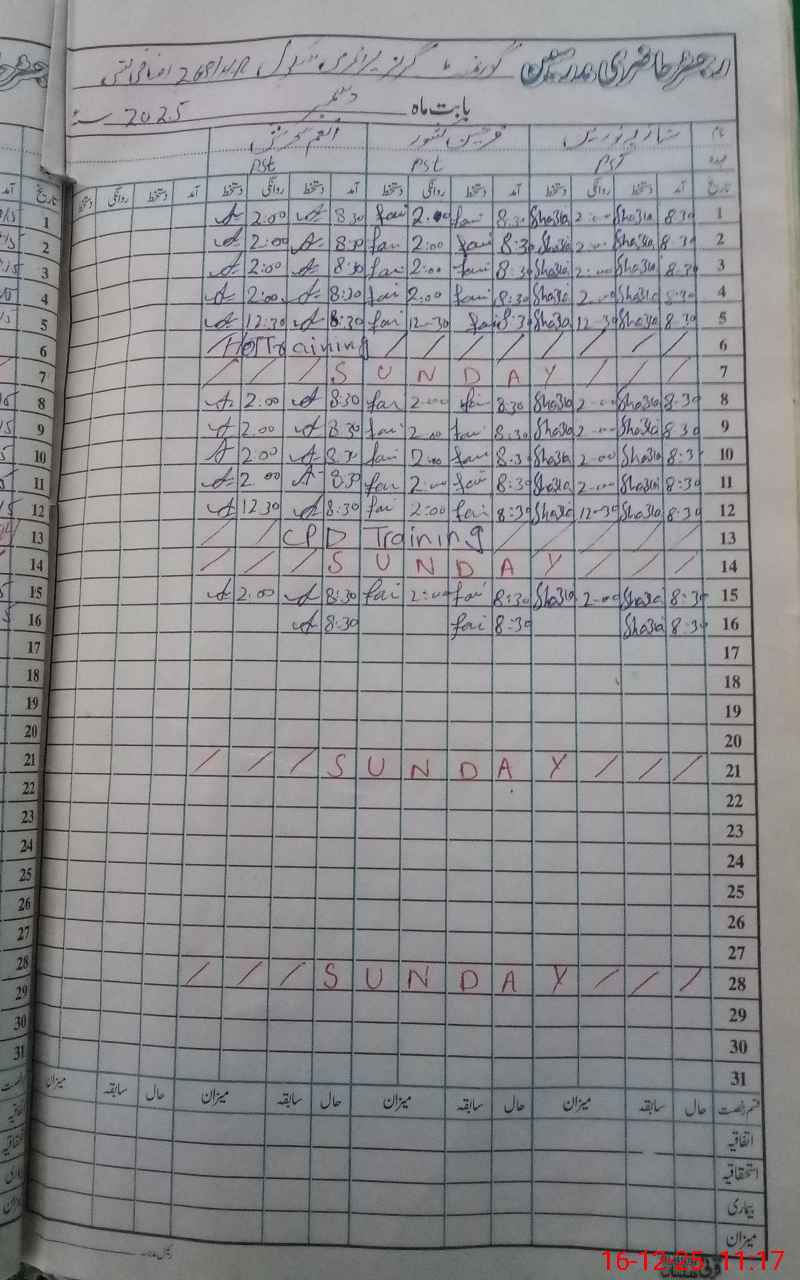 رجسٹر حاضری مدرسین گورنمنٹ گرلز پرائمری سکول 269/HR اضافی بستی
بابت ماہ دسمبر 2025 سنہ
نام شازیہ نورین فرحین کشور انعم سحر
عہدہ Pst Pst Pst
تاریخ آمد دستخط روانگی دستخط آمد دستخط روانگی دستخط آمد دستخط روانگی دستخط آمد دستخط روانگی دستخط
1 8:30 Shazia 2:00 Shazia 8:30 fari 2:00 fari 8:30 A 2:00 A
2 8:30 Shazia 2:00 Shazia 8:30 fari 2:00 fari 8:30 A 2:00 A
3 8:30 Shazia 2:00 Shazia 8:30 fari 2:00 fari 8:30 A 2:00 A
4 8:30 Shazia 2:00 Shazia 8:30 fari 2:00 fari 8:30 A 2:00 A
5 8:30 Shazia 12-30 Shazia 8:30 fari 12-30 fari 8:30 A 12:30 A
6 Training
7 SUNDAY
8 8:30 Shazia 2:00 Shazia 8:30 fari 2:00 fari 8:30 A 2:00 A
9 8:30 Shazia 2:00 Shazia 8:30 fari 2:00 fari 8:30 A 2:00 A
10 8:30 Shazia 2:00 Shazia 8:30 fari 2:00 fari 8:30 A 2:00 A
11 8:30 Shazia 2:00 Shazia 8:30 fari 2:00 fari 8:30 A 2:00 A
12 8:30 Shazia 12-30 Shazia 8:30 fari 2:00 fari 8:30 A 12:30 A
13 CPD Training
14 SUNDAY
15 8:30 Shazia 2:00 Shazia 8:30 fari 2:00 fari 8:30 A 2:00 A
16 8:30 Shazia 8:30 fari 8:30 A
17
18
19
20
21 SUNDAY
22
23
24
25
26
27
28 SUNDAY
29
30
31
قسم رخصت حال سابقہ میزان حال سابقہ میزان حال سابقہ میزان حال سابقہ میزان
اتفاقیہ
استحقاقیہ
بیماری
میزان
16-12-25 11.17